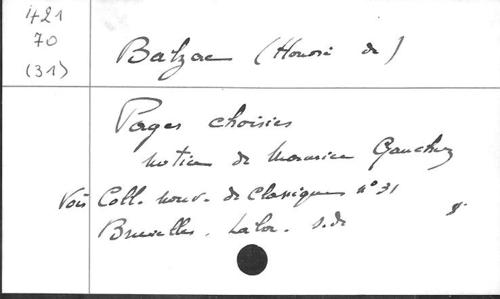 421
70
(31)
Balzac (Honoré de)
Pages choisies
notice de Maurice Gauchez
Voir Coll. nouv. de Classiques n° 31
Bruxelles. Labor. s.d.
8°